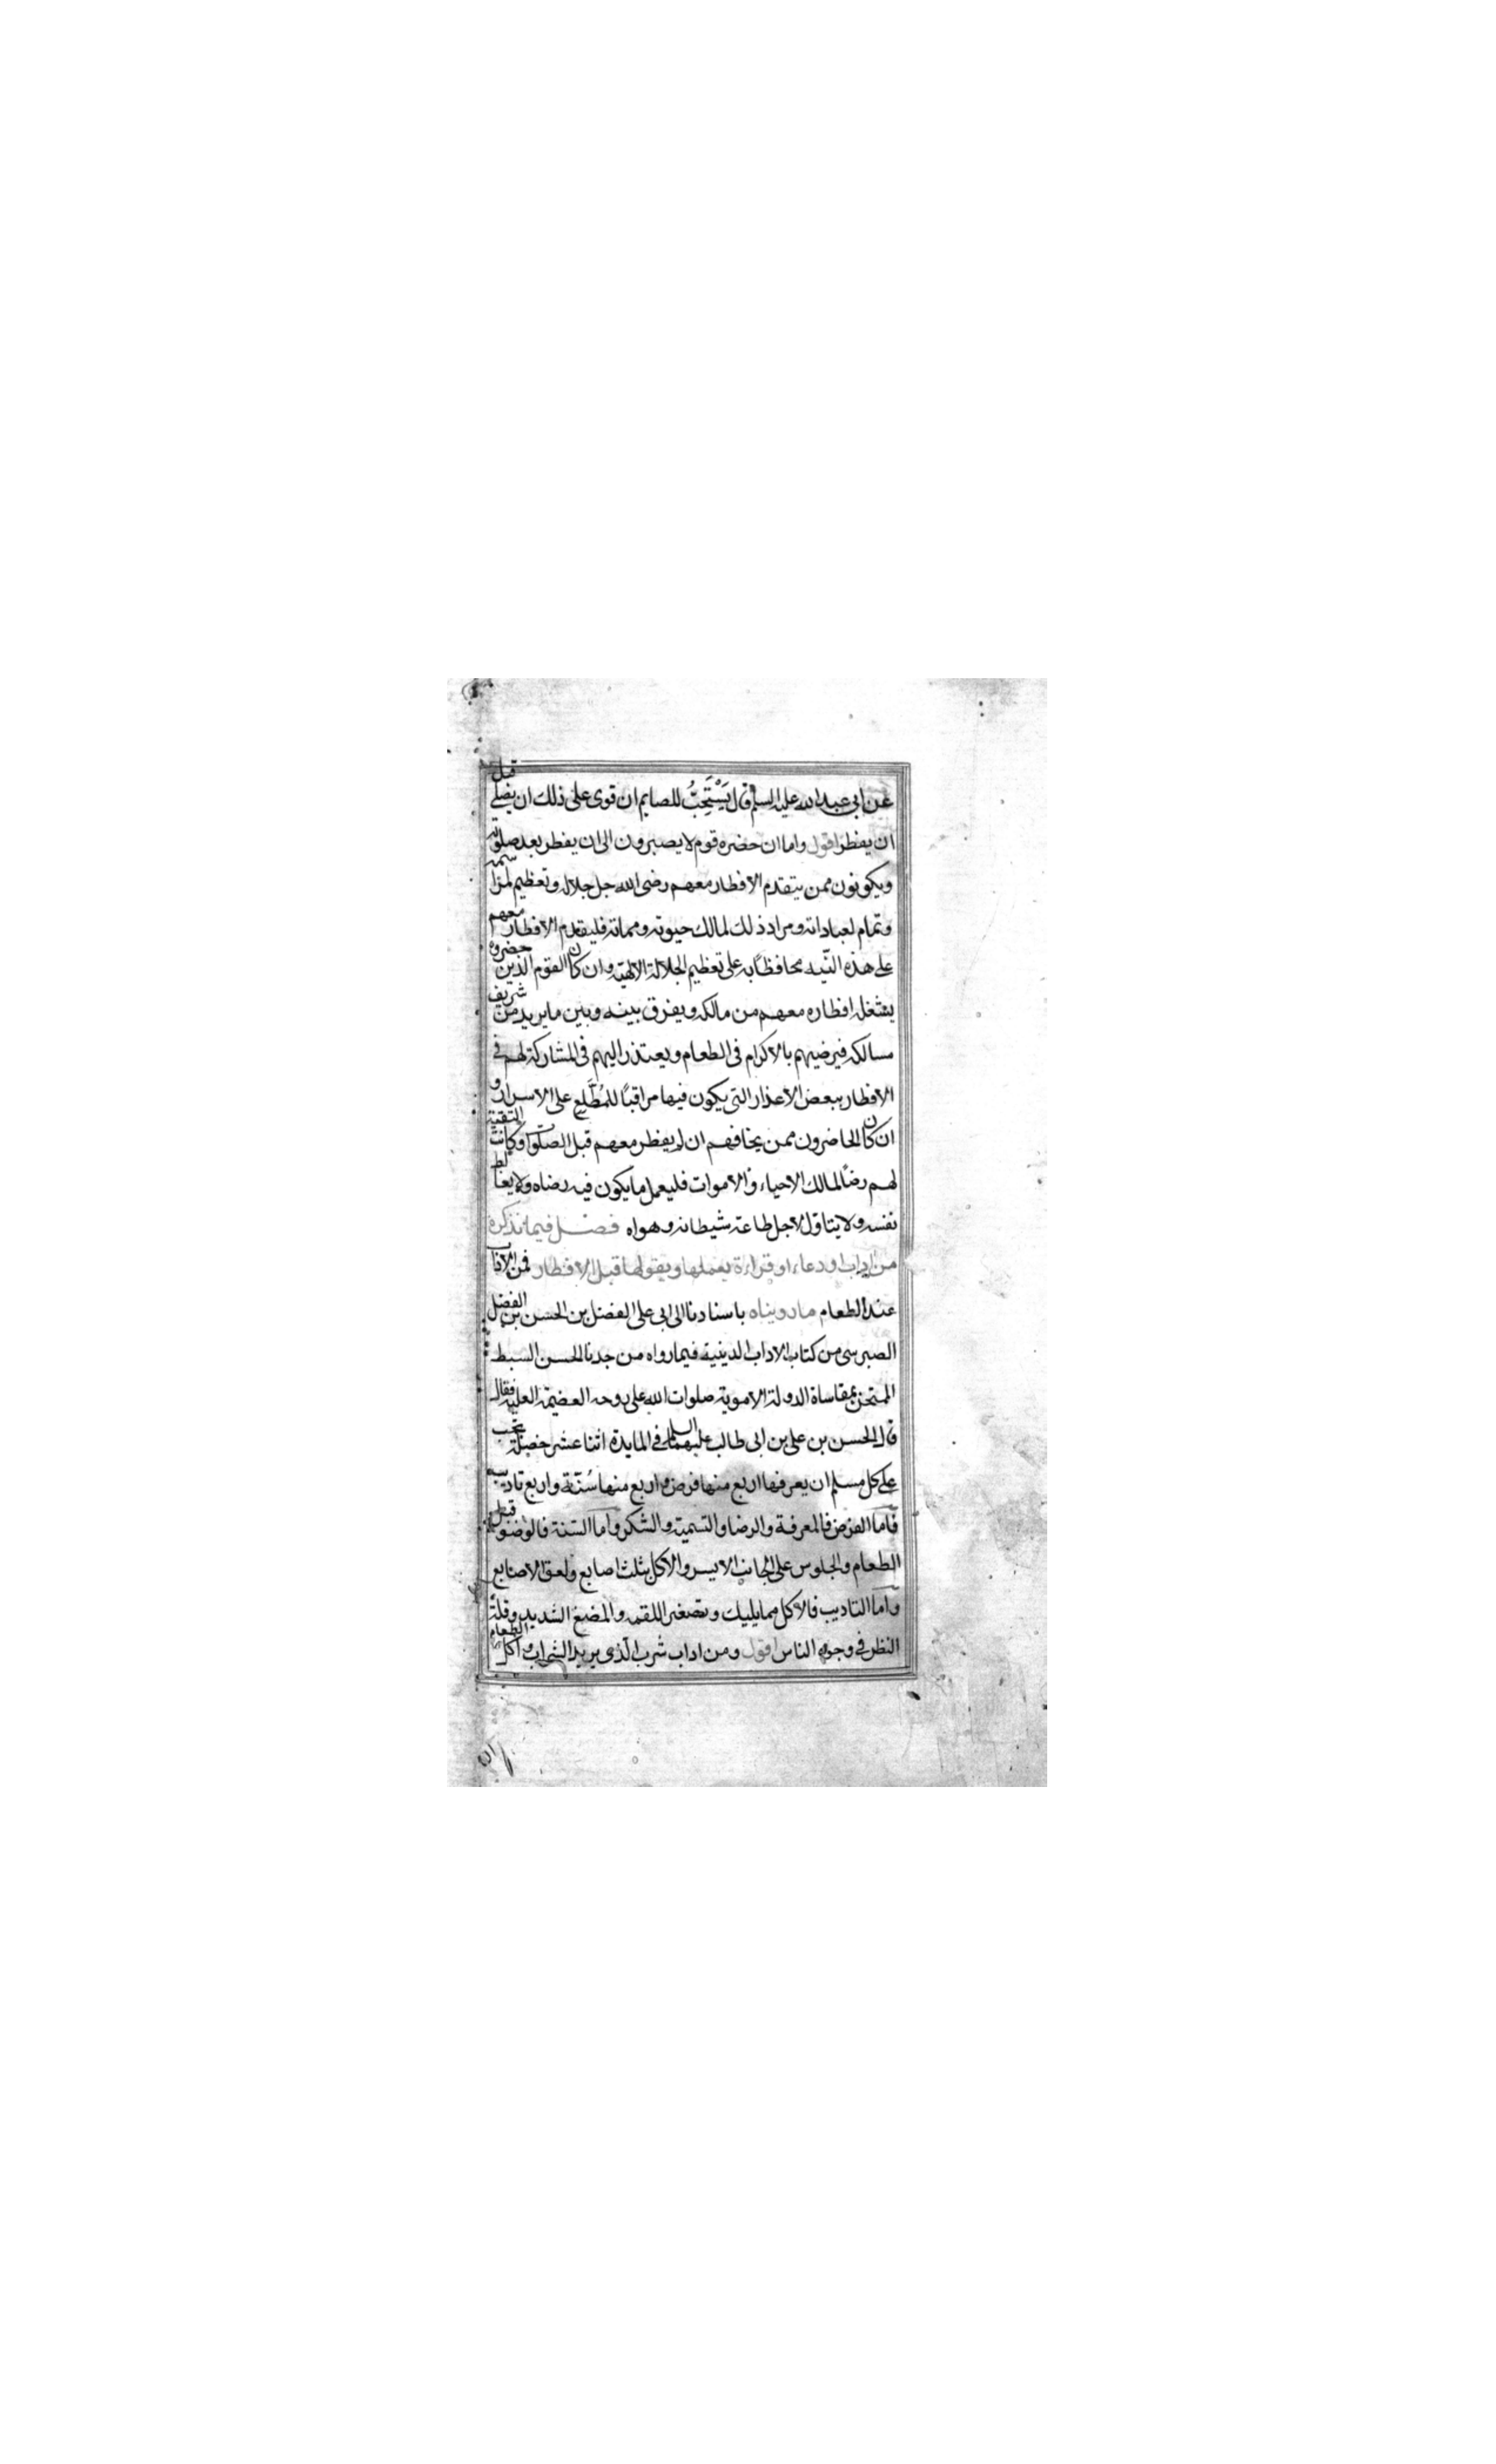 عن ابی عبد الله علیه السلم قال یَسْتَحِبُّ للصایم ان قوی علی ذلك ان یصلی قبل
ان یفطر اقول واما ان حضره قوم لا یصبرون الی ان یفطر بعد صلوته
ویکونون ممن یتقدم الافطار معهم رضی الله جل جلاله وتعظیم لمراسمه
وتمام لعباداته ومراد ذلك لمالك حیوته ومماته فلیقدم الافطار معهم
علی هذه النّیه محافظًا به علی تعظیم الجلالة الالهیّه وان کان القوم الذین حضروه
یشغله افطاره معهم من مالکه ویفرق بینه وبین ما یرید من شریف
مسالکه فیرضیهم بالاکرام فی الطعام ویعتذر الیهم فی المشارکة لهم فی
الافطار ببعض الاعذار التی یکون فیها مراقبًا للمُطَّلِع علی الاسرار و
ان کان الحاضرون ممن یخافهم ان لم یفطر معهم قبل الصلوة وکانت التقیة
لهم رضًا لمالك الاحیاء والاموات فلیعمل ما یکون فیه رضاه ولا یغالط
نفسه ولا یتاوّل لاجل طاعة شیطانه وهواه فصل فیما نذکره
من اداب او دعاء او قراءة یعملها ویقولها قبل الافطار فمن الاداب
عند الطعام ما رویناه باسنادنا الی ابی علی الفضل بن الحسن بن الفضل
الصبرسی من کتاب الاداب الدینیة فیما رواه من جدنا الحسن السبط
الممتحن بمقاساة الدولة الامویة صلوات الله علی روحه العضیمة العلیة فقال
قال الحسن بن علی بن ابی طالب علیهما السلم فی المایدة اثنا عشر خصلة یجب
علی کل مسلم ان یعرفها اربع منها فرض واربع منها سُنّة واربع تادیب
فامّا الفرض فالمعرفة والرضا والتسمیة والشکر وامّا السّنة فالوضو قبل
الطعام والجلوس علی الجانب الایسر والاکل بثلث اصابع ولعق الاصابع
وامّا التادیب فالاکل مما یلیك وتصغیر اللقمه والمضغ الشدید وقلة
النظر فی وجوه الناس اقول ومن اداب شرب الّذی یرید الشراب واکل الطعام